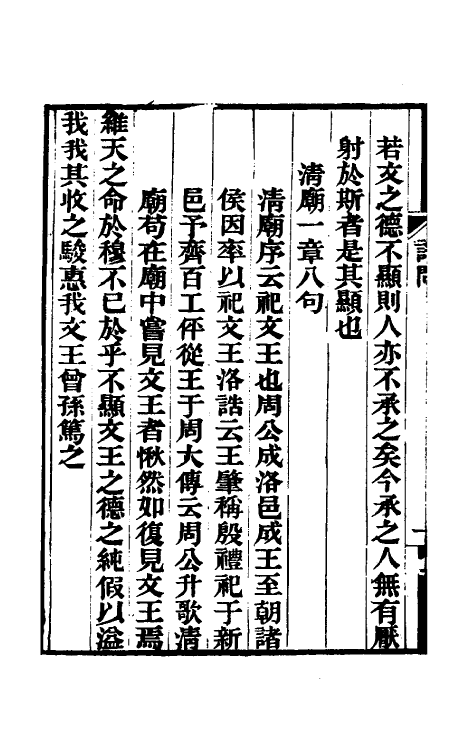 若文之德不顯則人亦不承之矣今承之人無有厭
射於斯者是其顯也
清廟一章八句
清廟序云祀文王也周公成洛邑成王至朝諸
侯因率以祀文王洛誥云王肇稱殷禮祀于新
邑予齊百工伻從王于周大傳云周公升歌清
廟苟在廟中嘗見文王者愀然如復見文王焉
維天之命於穆不已於乎不顯文王之德之純假以溢
我我其收之駿惠我文王曾孫篤之